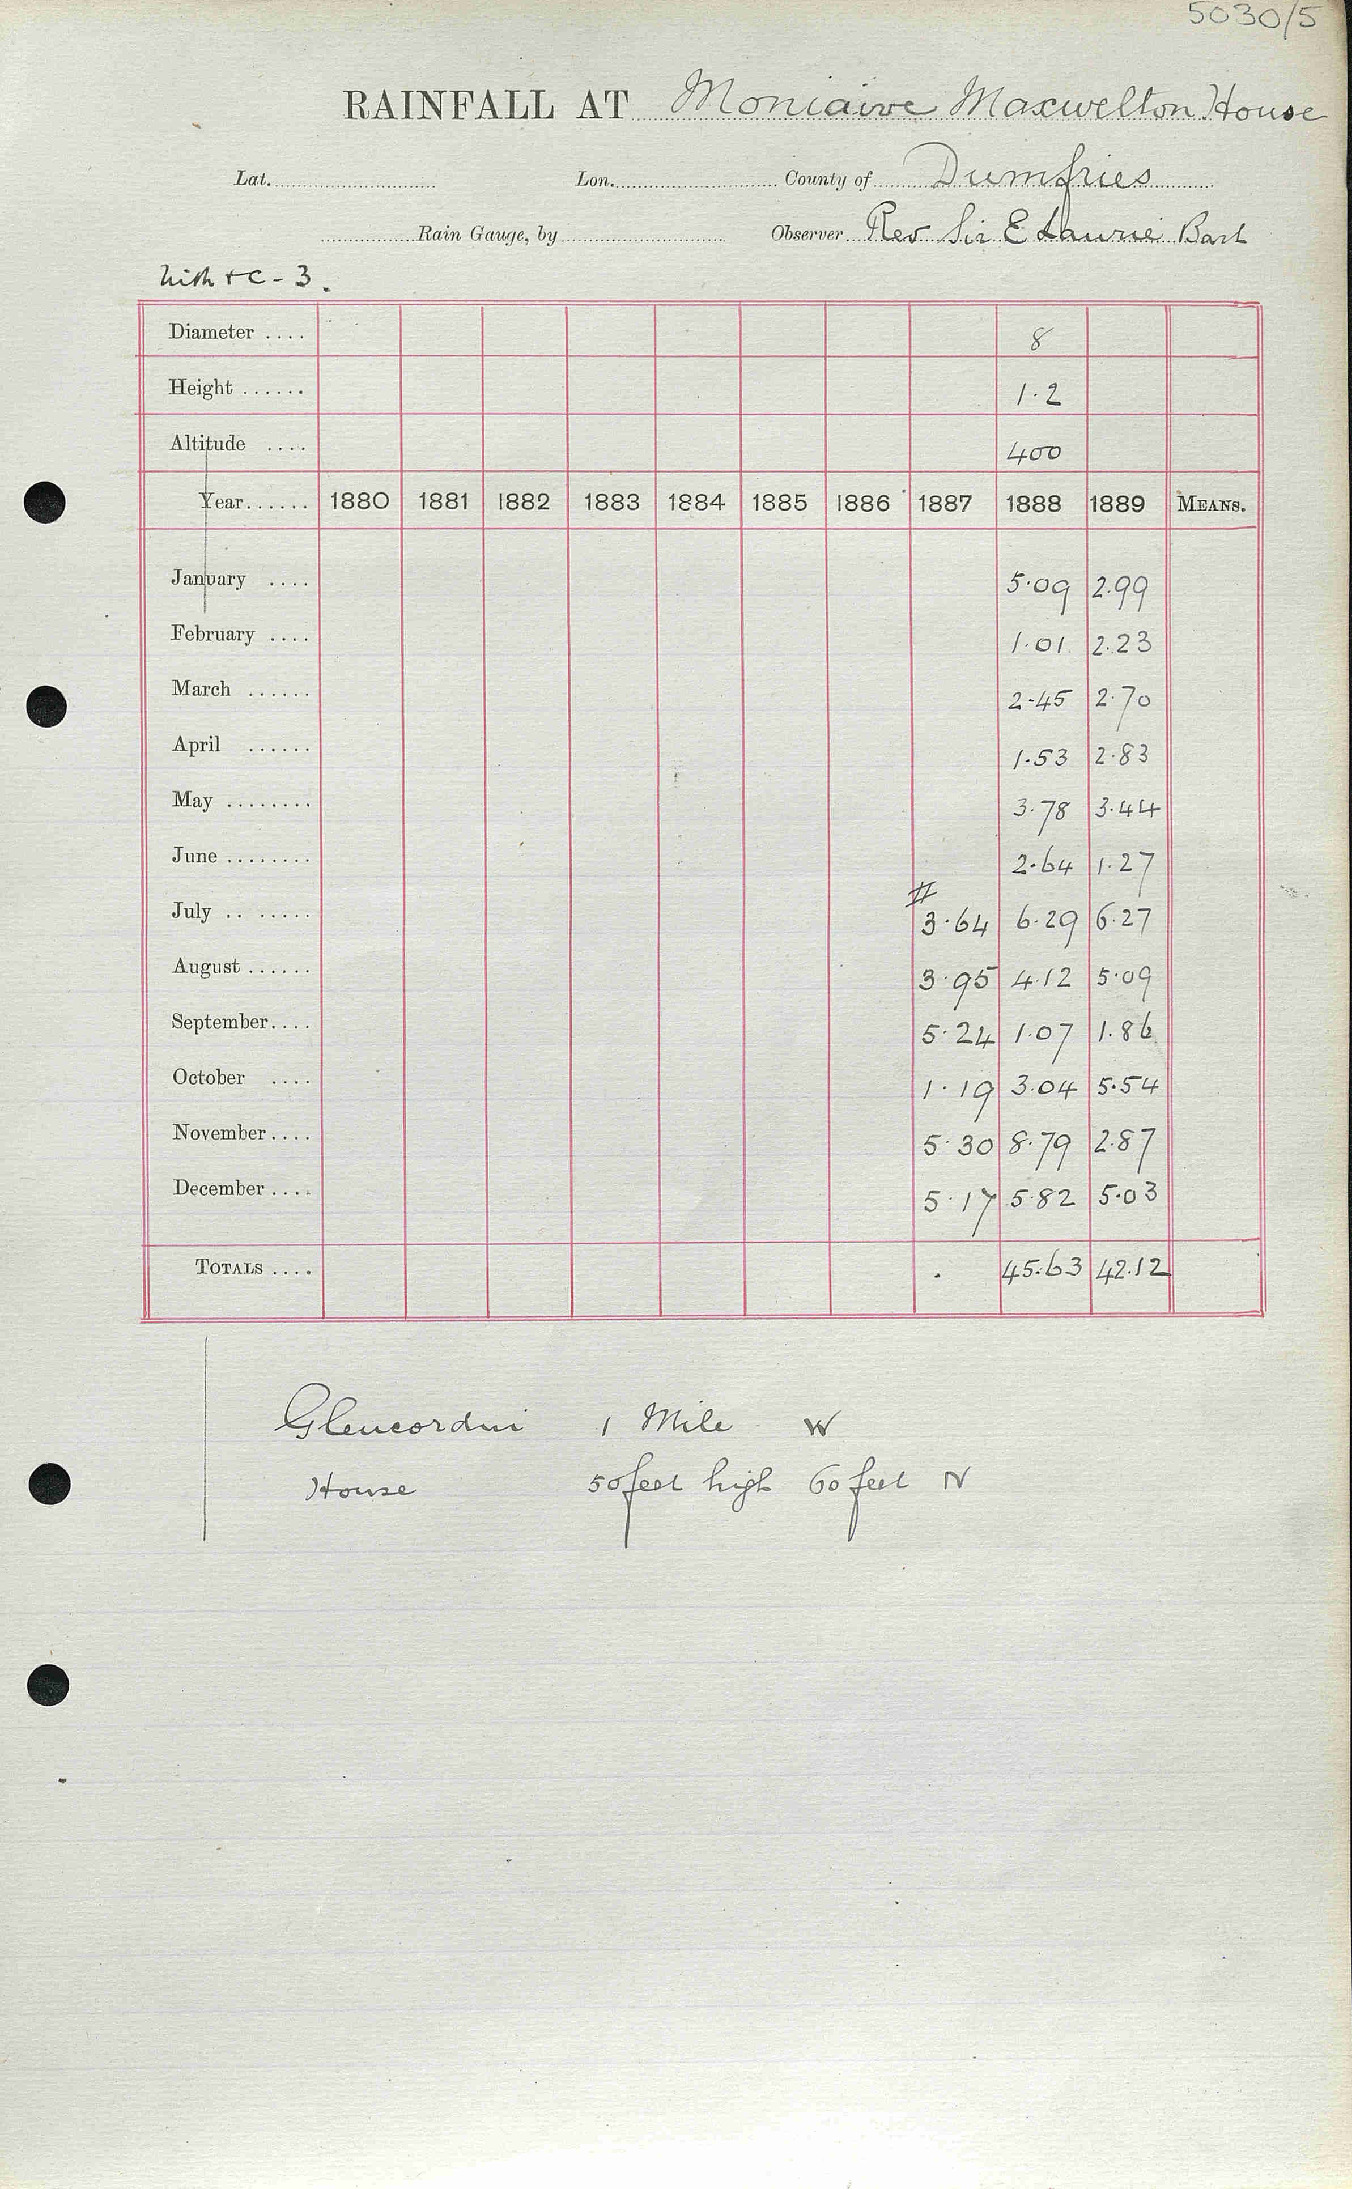 5030/5
RAINFALL AT Moniaive Maxwelton House
Lat. Lon. County of Dumfries
Rain Gauge, by Observer Rev Sir E Laurie Bart
+ C - 3.
Diameter .... 8
Height ...... 1.2
Altitude .... 400
Year...... 1880 1881 1882 1883 1884 1885 1886 1887 1888 1889 MEANS.
January .... 5.09 2.99
February .... 1.01 2.23
March ...... 2.45 2.70
April ...... 1.53 2.83
May ........ 3.78 3.44
June ........ 2.64 1.27
#
July .. ..... 3.64 6.29 6.27
August ...... 3.95 4.12 5.09
September.... 5.24 1.07 1.86
October .... 1.19 3.04 5.54
November.... 5.30 8.79 2.87
December .... 5.17 5.82 5.03
TOTALS .... . 45.63 42.12
1 Mile W
House 50 feet high 60 feet N